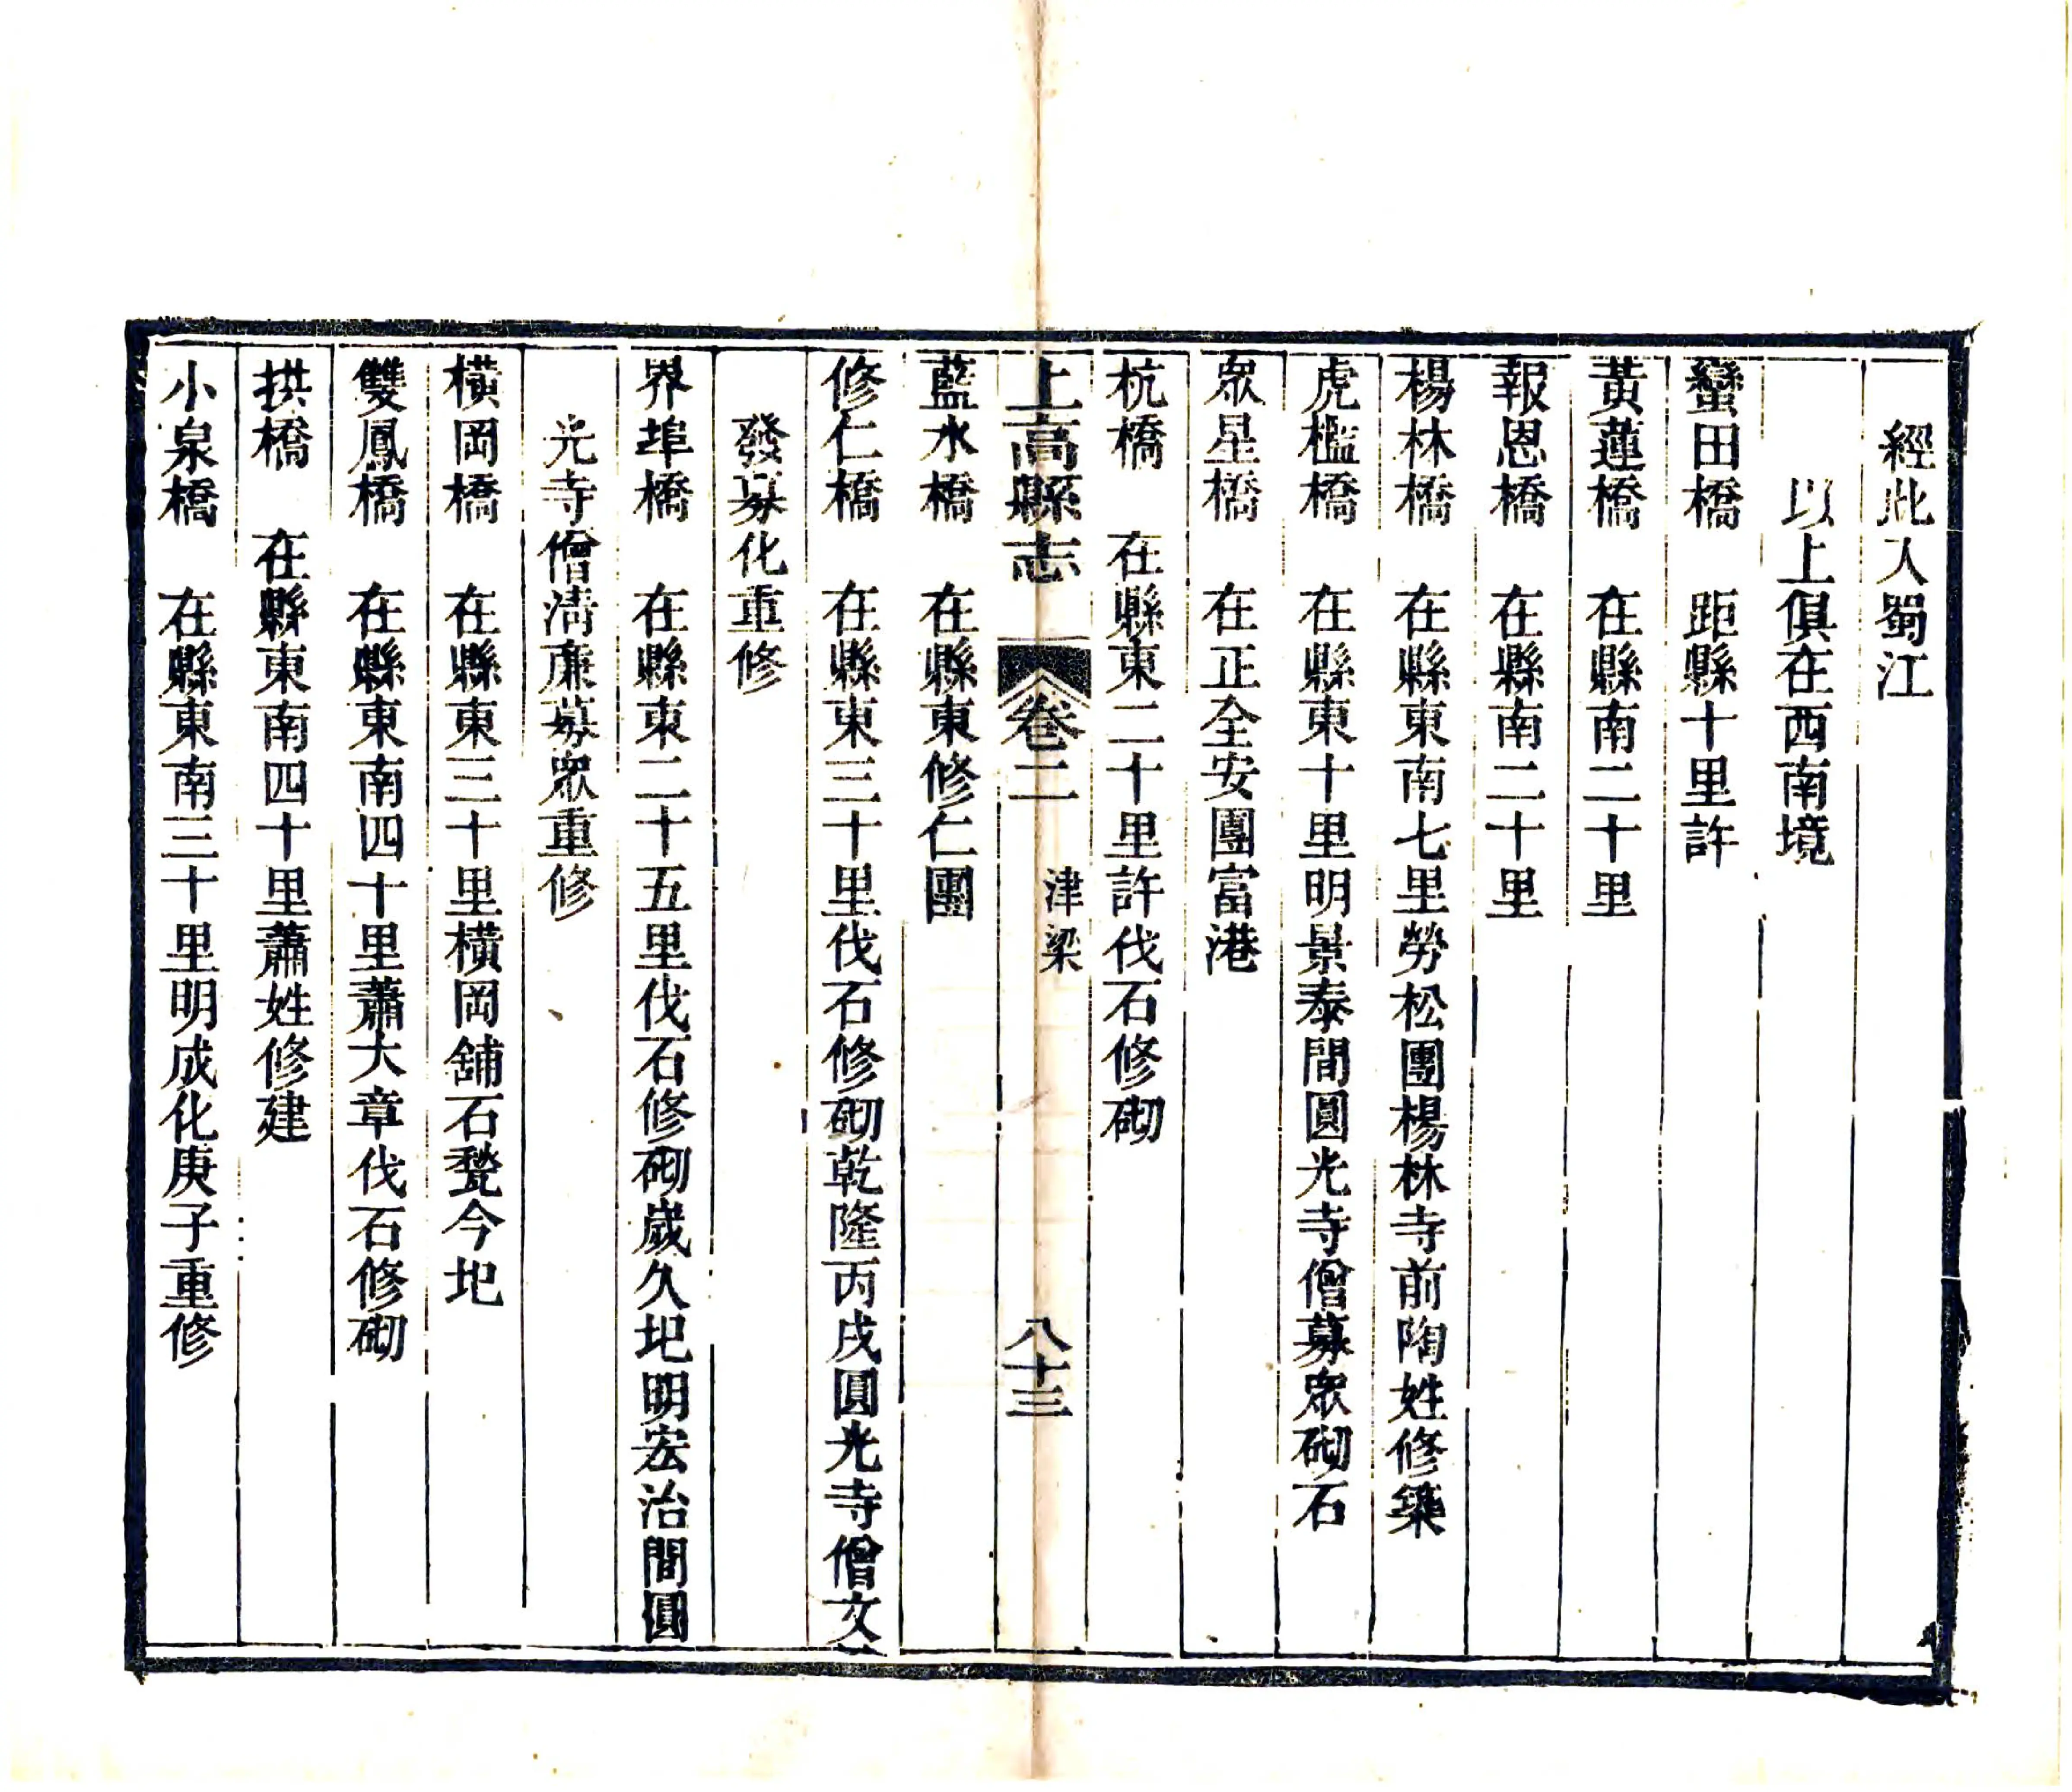 經此入蜀江
以上俱在西南境
蠻田橋　距縣十里許
黃蓮橋　在縣南二十里
報恩橋　在縣南二十里
楊林橋　在縣東南七里勞松團楊林寺前陶姓修築
虎檻橋　在縣東十里明景泰間圓光寺僧募眾砌石
眾星橋　在正全安團富港
杭橋　在縣東二十里許伐石修砌
上高縣志　卷二　津梁　八十三
藍水橋　在縣東修仁團
修仁橋　在縣東三十里伐石修砌乾隆丙戌圓光寺僧文
發募化重修
界埠橋　在縣東二十五里伐石修砌歲久圯明宏治間圓
光寺僧清廉募眾重修
橫岡橋　在縣東三十里橫岡舖石甃今圯
雙鳳橋　在縣東南四十里蕭大章伐石修砌
拱橋　在縣東南四十里蕭姓修建
小泉橋　在縣東南三十里明成化庚子重修